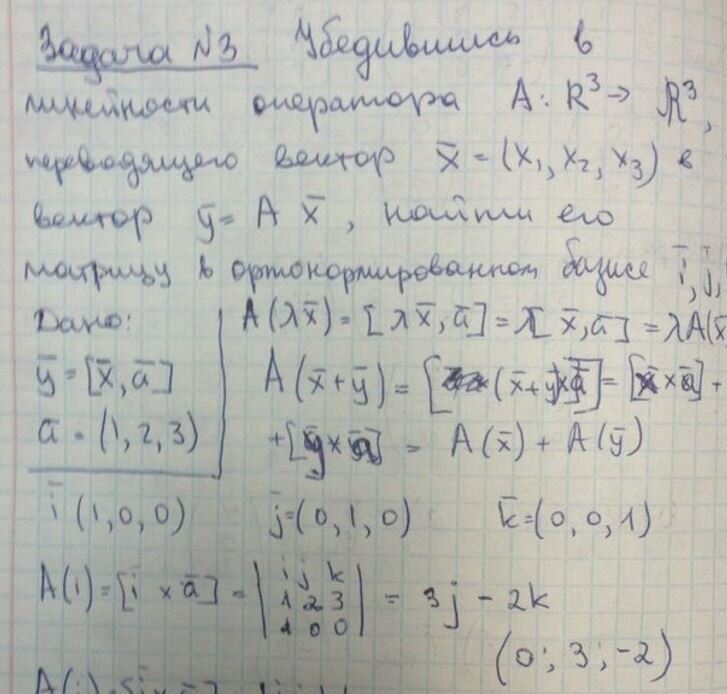 Задача №3 Убедившись в
линейности оператора A: R³→ R³,
переводящего вектор x̄ = (x₁, x₂, x₃) в
вектор ȳ = A x̄, найти его
матрицу в ортонормированном базисе ī, j̄,
Дано: A(λx̄) = [λx̄, ā] = λ[x̄, ā] = λA(x̄
ȳ = [x̄, ā] A(x̄+ȳ) = [(x̄+y)×ā] = [x̄ × ā] +
ā = (1, 2, 3) + [ȳ × ā] = A(x̄) + A(ȳ)
ī (1, 0, 0) j̄ = (0, 1, 0) k̄ = (0, 0, 1)
A(i) = [ī × ā] = | i j k | = 3j - 2k
| 1 2 3 |
| 1 0 0 |
(0; 3; -2)